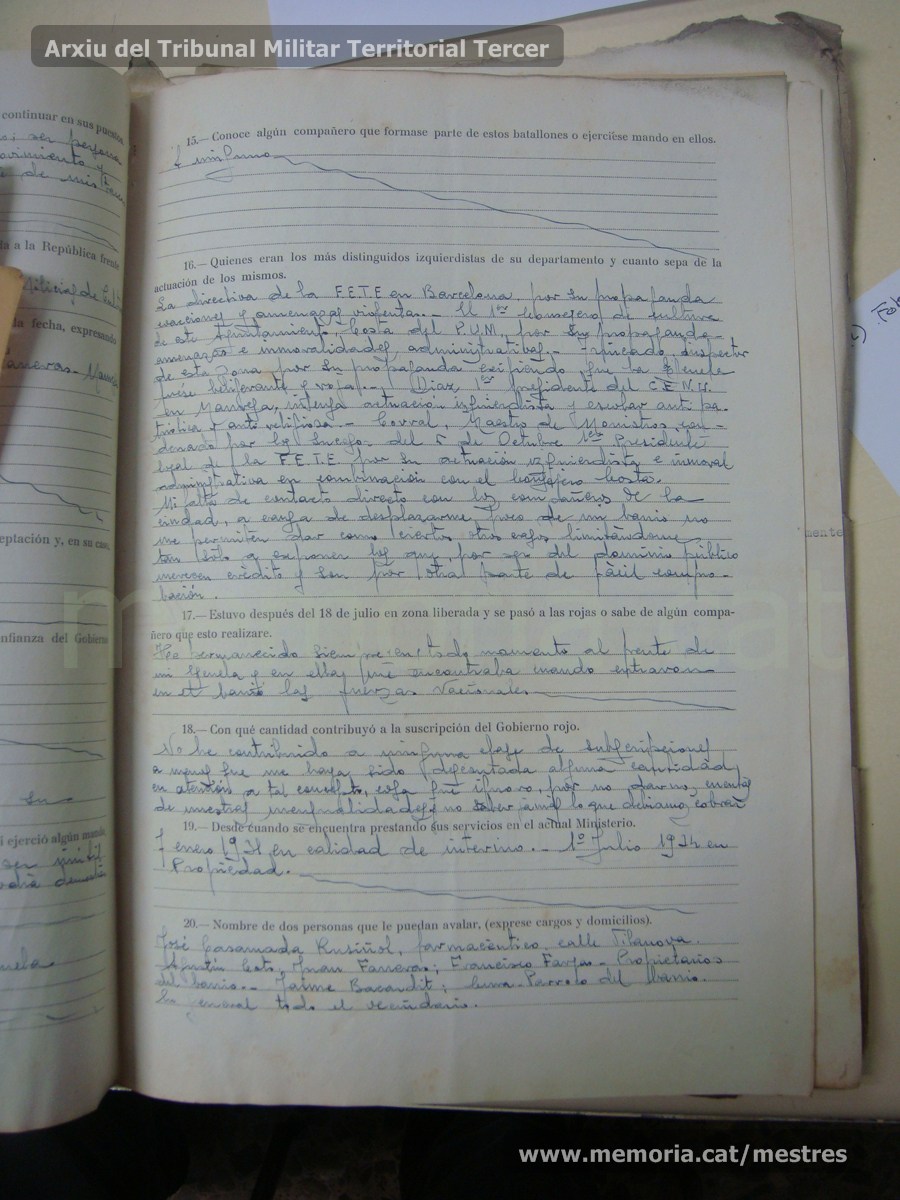 Arxiu del Tribunal Militar Territorial Tercer
continuar en sus puestos
ta a la República frente
la fecha, expresando
eptación y, en su caso,
nfianza del Gobierno
i ejerció algún mando
15.— Conoce algún compañero que formase parte de estos batallones o ejerciese mando en ellos.
A ninguno
16.— Quienes eran los más distinguidos izquierdistas de su departamento y cuanto sepa de la
actuación de los mismos.
La directiva de la F.E.T.E en Barcelona, por su propaganda
coacciones y amenazas violentas.- El 1er Consejero de cultura
de este Ayuntamiento, Costa del P.U.M, por su propaganda
amenazas e inmoralidades administrativas.- Inspector
de esta Zona, por su propaganda exigiendo que la Escuela
fuese beligerante y roja.- Diaz, 1er Presidente del C.E.N.U.
en Manresa, intensa actuación izquierdista y escolar anti pa-
triótica y anti religiosa.- Corral, Maestro de Monistrol, con-
denado por los sucesos del 6 de Octubre 1er Presidente
local de la F.E.T.E. por su actuación izquierdista e inmoral
administrativa en combinación con el Consejero Costa.
Mi falta de contacto directo con los compañeros de la
ciudad, a causa de desplazarme poco de mi barrio no
me permiten dar como ciertos otros casos limitándome
tan sólo a exponer los que, por ser del dominio público
merecen crédito y son por otra parte de fácil compro-
bación.
17.— Estuvo después del 18 de julio en zona liberada y se pasó a las rojas o sabe de algún compa-
ñero que esto realizare.
He permanecido siempre en todo momento al frente de
mi Escuela y en ella me encontraba cuando entraron
en el barrio las fuerzas Nacionales
18.— Con qué cantidad contribuyó a la suscripción del Gobierno rojo.
No he contribuido a ninguna clase de subscripciones,
a menos que me haya sido descontada alguna cantidad
en atención a tal concepto, cosa que ignoro, por no darnos cuenta
de nuestras mensualidades y no saber jamás lo que debíamos cobrar
19.— Desde cuando se encuentra prestando sus servicios en el actual Ministerio.
enero en calidad de interino.- 1º Julio en
Propiedad.
20.— Nombre de dos personas que le puedan avalar, (exprese cargos y domicilios).
José Casamada Rusiñol, farmacéutico, calle Vilanova.
Agustín Juan Farreras; Francisco Propietarios
del barrio.- Jaime Bacardit; Cura-Párroco del barrio.
En general todo el vecindario.
mente
www.memoria.cat/mestres